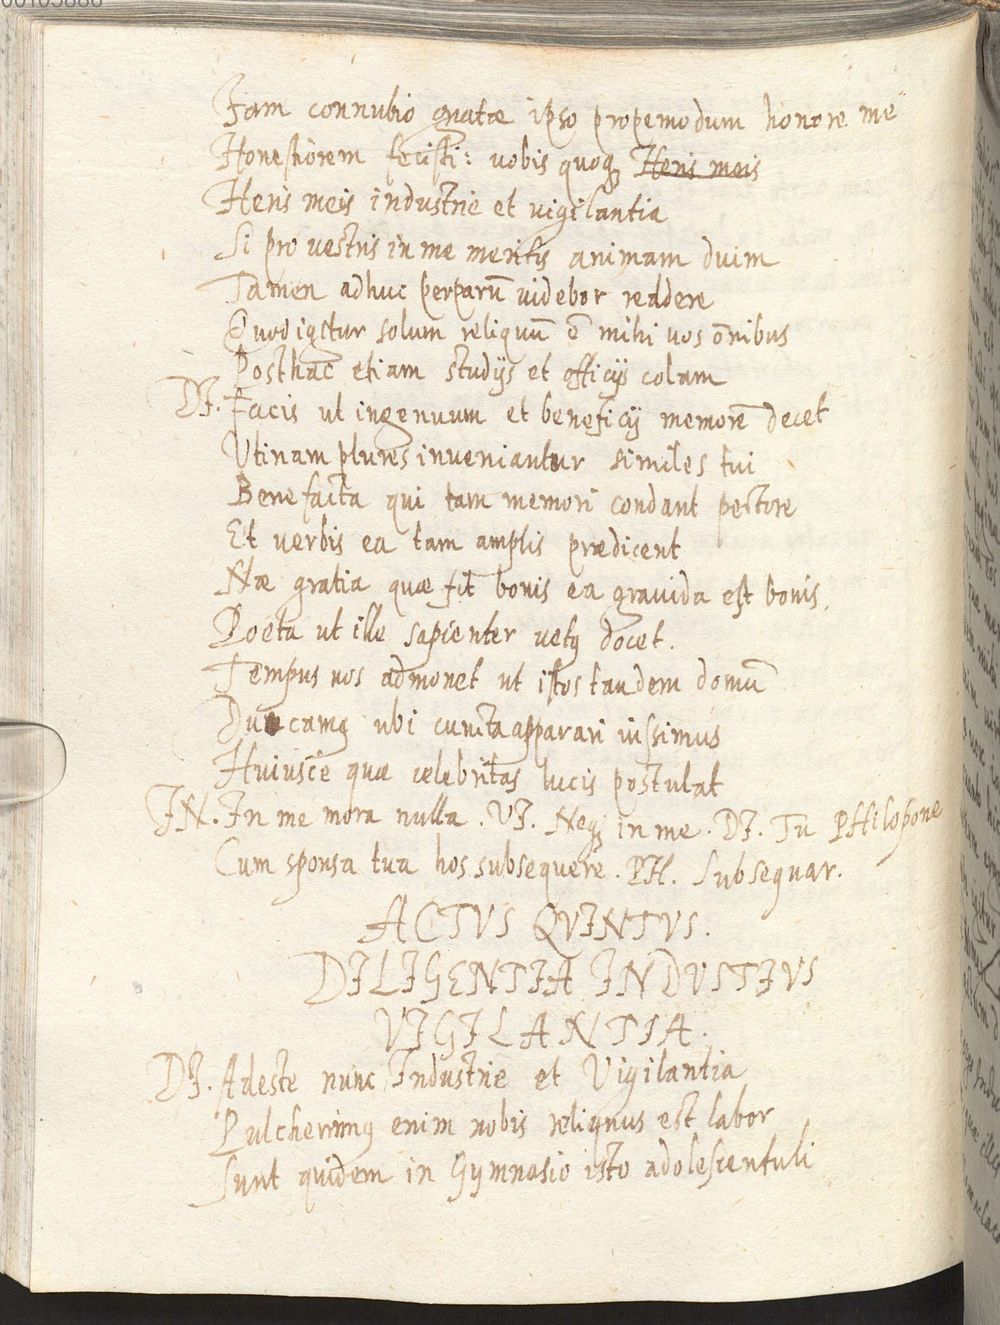 00105886
Iam connubio gnatæ ipso propemodum honore me
Honestiorem fecisti: uobis quoq₃ Heris meis
Heris meis industrie et vigilantia
Si pro vestris in me meritis animam duim
Tamen adhuc perparū uidebor reddere
Quod igitur solum reliquū ē mihi uos ōnibus
Posthac etiam studijs et officijs colam
DI. Facis ut ingenuum et beneficij memorē decet
Vtinam plures inueniantur similes tui
Benefacta qui tam memori condant pectore
Et uerbis ea tam amplis prædicent
Næ gratia quæ fit bonis ea grauida est bonis.
Poeta ut ille sapienter uetꝯ docet.
Tempus nos admonet ut istos tandem domū
Ducamꝯ ubi cuncta apparari iussimus
Huiusce quæ celebritas lucis postulat
IN. In me mora nulla. VI. Neq₃ in me. DI. Tu PHilopone
Cum sponsa tua hos subsequere. PH. Subsequar.
ACTVS QVINTVS.
DILIGENTIA INDVSTIVS
VIGILANTIA.
DI. Adeste nunc Industrie et Vigilantia
Pulcherrimꝯ enim nobis reliquus est labor
Sunt quidem in Gymnasio isto adolescentuli